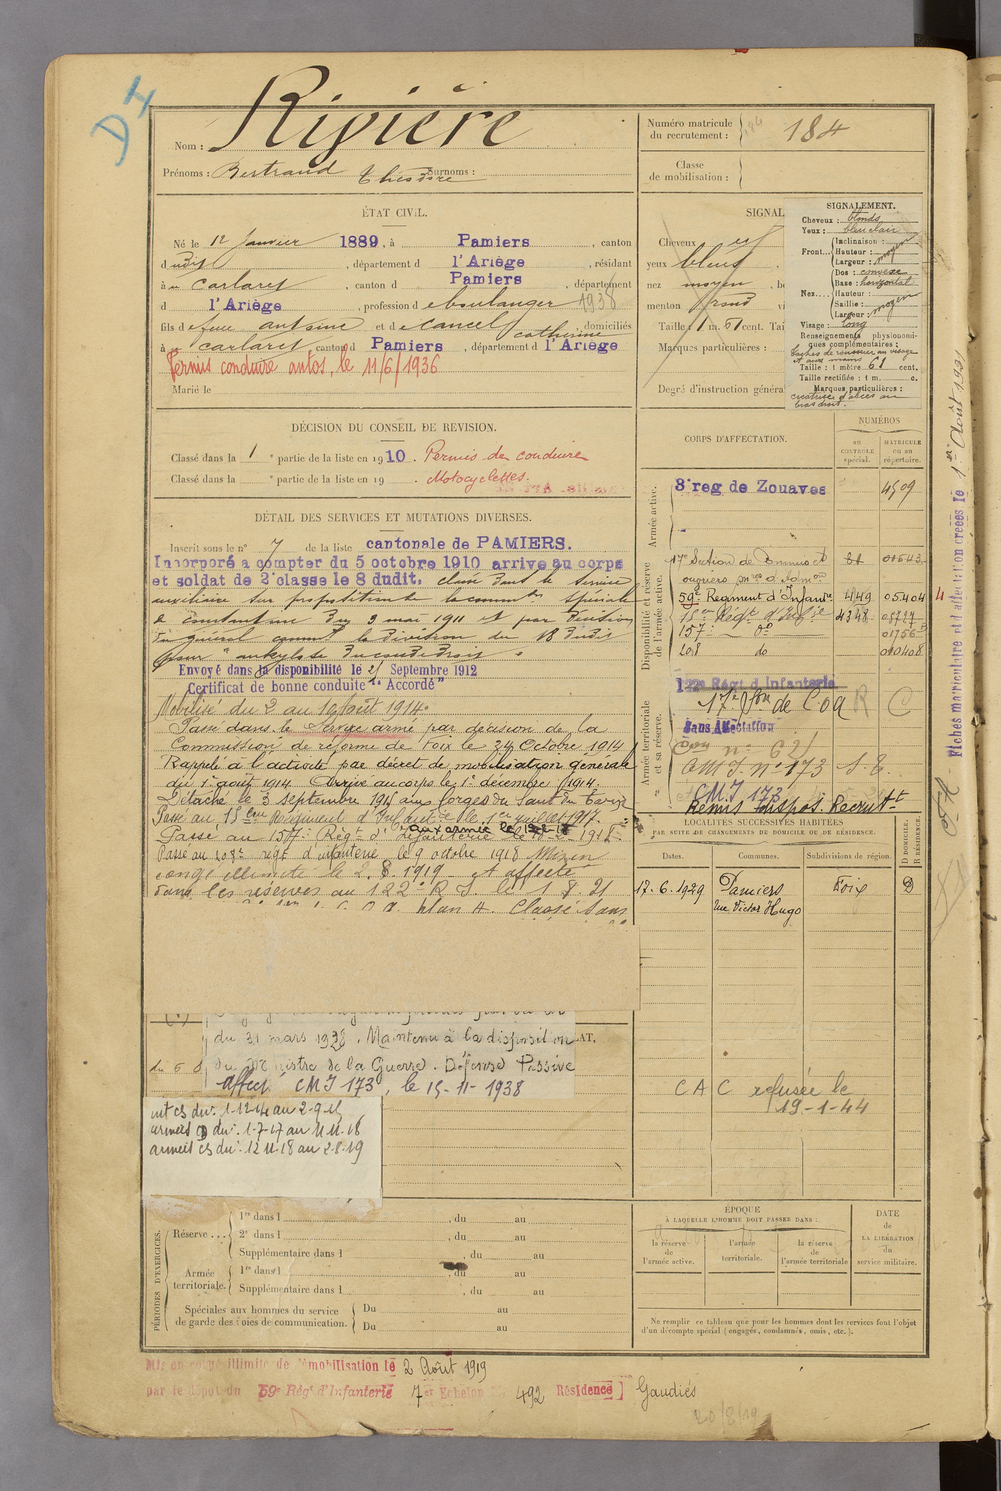 D4
Nom : Rivière
Prénoms : Bertrand Théodore Surnoms :
Numéro matricule du recrutement : 184
Classe de mobilisation :
ÉTAT CIVIL.
Né le 12 Janvier 1889, à Pamiers, canton
dudit, département d l'Ariège, résidant
à Carlaret, canton d Pamiers, département
d l'Ariège, profession de boulanger 1938
fils de feu antoine et de Cancel Catherine, domiciliés
à Carlaret, canton d Pamiers, département d l'Ariège
Permis conduire autos, le 11/6/1936
Marié le
SIGNAL
Cheveux
yeux bleus
nez moyen
menton rond
Taille : 1 m. 61 cent. Tai
Marques particulières :
Degré d'instruction généra
SIGNALEMENT.
Cheveux : blonds
Yeux : bleu clair
Front... Inclinaison :
Hauteur : moyen
Largeur :
Nez.... Dos : convexe
Base : horizontal
Hauteur :
Saillie : moyen
Largeur :
Visage : long
Renseignements physionomi-
ques complémentaires :
taches de rousseur au visage
et aux mains
Taille : 1 mètre 61 cent.
Taille rectifiée : 1 m. c.
Marques particulières :
cicatrice d'abcès au
bras droit.
DÉCISION DU CONSEIL DE REVISION.
Classé dans la 1e partie de la liste en 1910. Permis de conduire
Classé dans la e partie de la liste en 19 . Motocyclettes.
DÉTAIL DES SERVICES ET MUTATIONS DIVERSES.
Inscrit sous le n° 7 de la liste cantonale de PAMIERS.
Incorporé a compter du 5 octobre 1910 arrive au corps
et soldat de 2e classe le 8 dudit. classé dans le service
auxiliaire sur proposition de la comm on spéciale
de Constantine du 3 mai 1911 et par décision
du général commt la division du 18 dudit
pour "ankylose du coude droit"
Envoyé dans la disponibilité le 25 Septembre 1912
Certificat de bonne conduite "Accordé"
Mobilisé du 3 au 10 août 1914.
Passé dans le Service armé par décision de la
Commission de réforme de Foix le 24 Octobre 1914
Rappelé à l'activité par décret de mobilisation générale
du 1er août 1914 Arrivé au corps le 1er décembre 1914.
Détaché le 3 septembre 1915 aux forges du Saut du Tarn
Passé au 15eme Régiment d'Infanterie le 1er juillet 1917.
aux armées le
Passé au 157e Régt d'Infanterie le 1918
Passé au 208e régt d'infanterie le 9 octobre 1918 Mis en
congé illimité le 2.8.1919 et affecté
dans les réserves au 122e R I. le 1.8.21
plan A. Classé Sans
CORPS D'AFFECTATION.
NUMÉROS
au CONTROLE spécial.
MATRICULE ou au répertoire.
Armée active.
8e reg de Zouaves 4509
Disponibilité et réserve de l'armée active.
17e Section de Commis et 00543
ouvriers mres d'adm on
59e Regiment d'Infantie 449 05404
15eme Régt d'Inf ie 4348 05727
157e do 01756
208 do 010408
Armée territoriale et sa réserve.
122e Régt d Infanterie
17e Son de COA R C
Sans Affectation
Cion n° 621
CMJ. n° 173 S.E.
CMJ 173
Remis à dispos. Recrutt
LOCALITÉS SUCCESSIVES HABITÉES
PAR SUITE DE CHANGEMENTS DE DOMICILE OU DE RÉSIDENCE.
Dates. Communes. Subdivisions de région. D DOMICILE. R RÉSIDENCE.
17.6.1929 Pamiers Foix D
Rue Victor Hugo
CAC refusée le
19-1-44
du 31 mars 1928. Maintenu à la disposition
du Ministre de la Guerre. Défense Passive
affect CMJ 173, le 15-11-1938
int cs du : 1-12-14 au 2-9-15
armées D du : 1-7-17 au 11-11-18
armées cs du : 12-11-18 au 2-8-19
PÉRIODES D'EXERCICES.
Réserve ... 1re dans l , du au
2e dans l , du au
Supplémentaire dans l , du au
Armée territoriale. 1re dans l , du au
Supplémentaire dans l , du au
Spéciales aux hommes du service de garde des voies de communication. Du au
Du au
ÉPOQUE
À LAQUELLE L'HOMME DOIT PASSER DANS :
la réserve de l'armée active.
l'armée territoriale.
la réserve de l'armée territoriale
DATE de LA LIBÉRATION du service militaire.
Ne remplir ce tableau que pour les hommes dont les services font l'objet
d'un décompte spécial (engagés, condamnés, omis, etc.).
Mis en congé illimité de démobilisation le 2 Août 1919
par le dépôt du 59e Régt d'Infanterie 7e Echelon 492 Résidence Gaudiès
20/8/19
Fiches matriculaire et d'affectation créées le 1er Août 1921